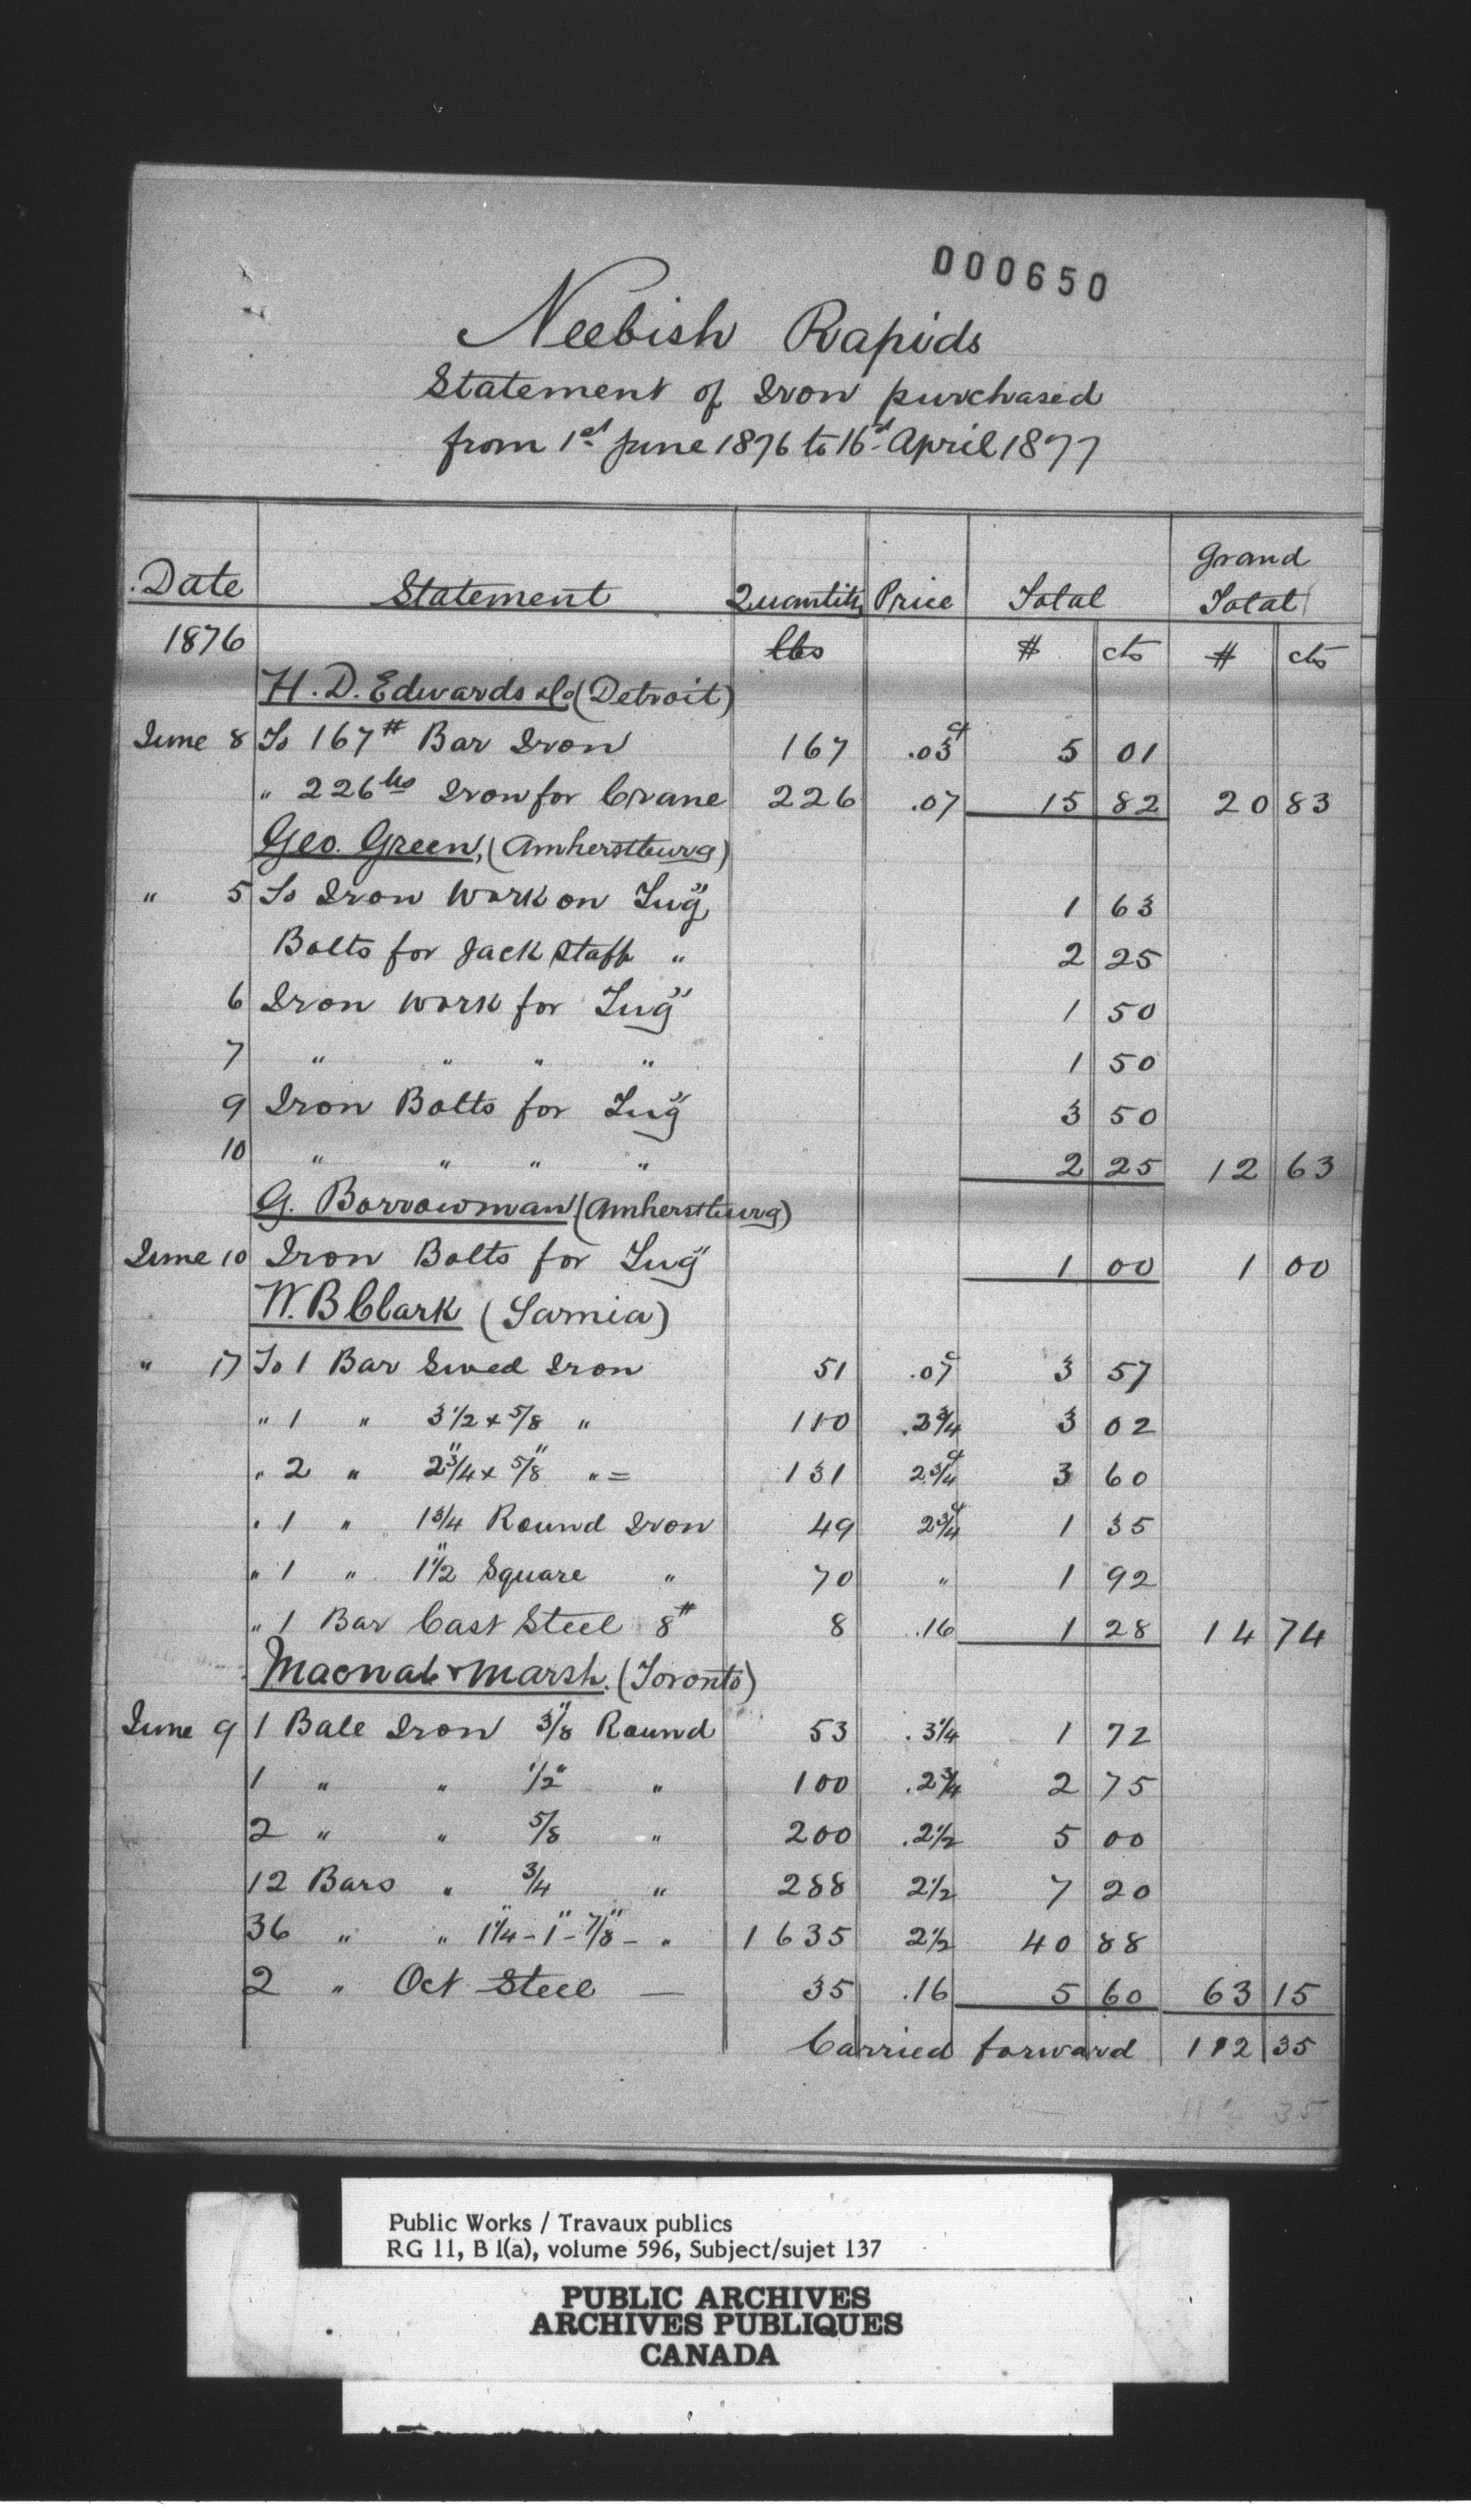 000650
Neebish Rapids
Statement of Iron purchased
from 1st June 1876 to 16st April 1877
Date Statement Quantity Price Total Grand Total
1876 lbs $ cts $ cts
H. D. Edwards & Co (Detroit)
June 8 To 167# Bar Iron 167 .03c 5 01
" 226lbs Iron for Crane 226 .07 15 82 20 83
Geo. Green, (Amherstburg)
" 5 To Iron Work on Tug" 1 63
Bolts for Jack Staff " 2 25
6 Iron work for Tug" 1 50
7 " " " " 1 50
9 Iron Bolts for Tug" 3 50
10 " " " " 2 25 12 63
G. Borrowman (Amherstburg)
June 10 Iron Bolts for Tug" 1 00 1 00
W. B Clark (Sarnia)
" 17 To 1 Bar Swed Iron 51 .07c 3 57
" 1 " 3 1/2 x 5/8 " 110 .2 3/4 3 02
" 2 " 2 3/4" x 5/8" " = 131 2 3/4c 3 60
" 1 " 1 3/4 Round Iron 49 2 3/4c 1 35
" 1 " 1 1/2" Square " 70 " 1 92
" 1 Bar Cast Steel 8# 8 .16 1 28 14 74
Macnab & Marsh. (Toronto)
June 9 1 Bale Iron 3/8" Round 53 .3 1/4 1 72
1 " " 1/2" " 100 .2 3/4 2 75
2 " " 5/8 " 200 .2 1/2 5 00
12 Bars " 3/4 " 288 2 1/2 7 20
36 " " 1 1/4" - 1" - 7/8" - " 1635 2 1/2 40 88
2 " Oct Steel — 35 .16 5 60 63 15
Carried forward 112 35
Public Works / Travaux publics
RG 11, B 1(a), volume 596, Subject/sujet 137
PUBLIC ARCHIVES
ARCHIVES PUBLIQUES
CANADA